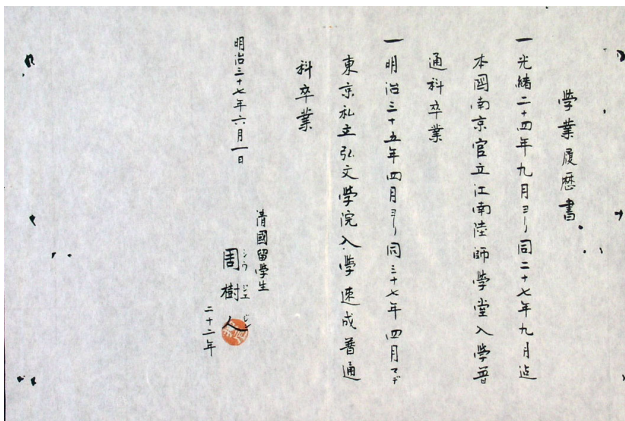 學業履歷書
一光緒二十四年九月ヨリ同二十七年九月迄
本國南京官立江南陸師學堂入學普
通科卒業
一明治三十五年四月ヨリ同三十七年四月マデ
東京私立弘文學院入學速成普通
科卒業
明治三十七年六月一日
清國留學生
周樹人
二十二年